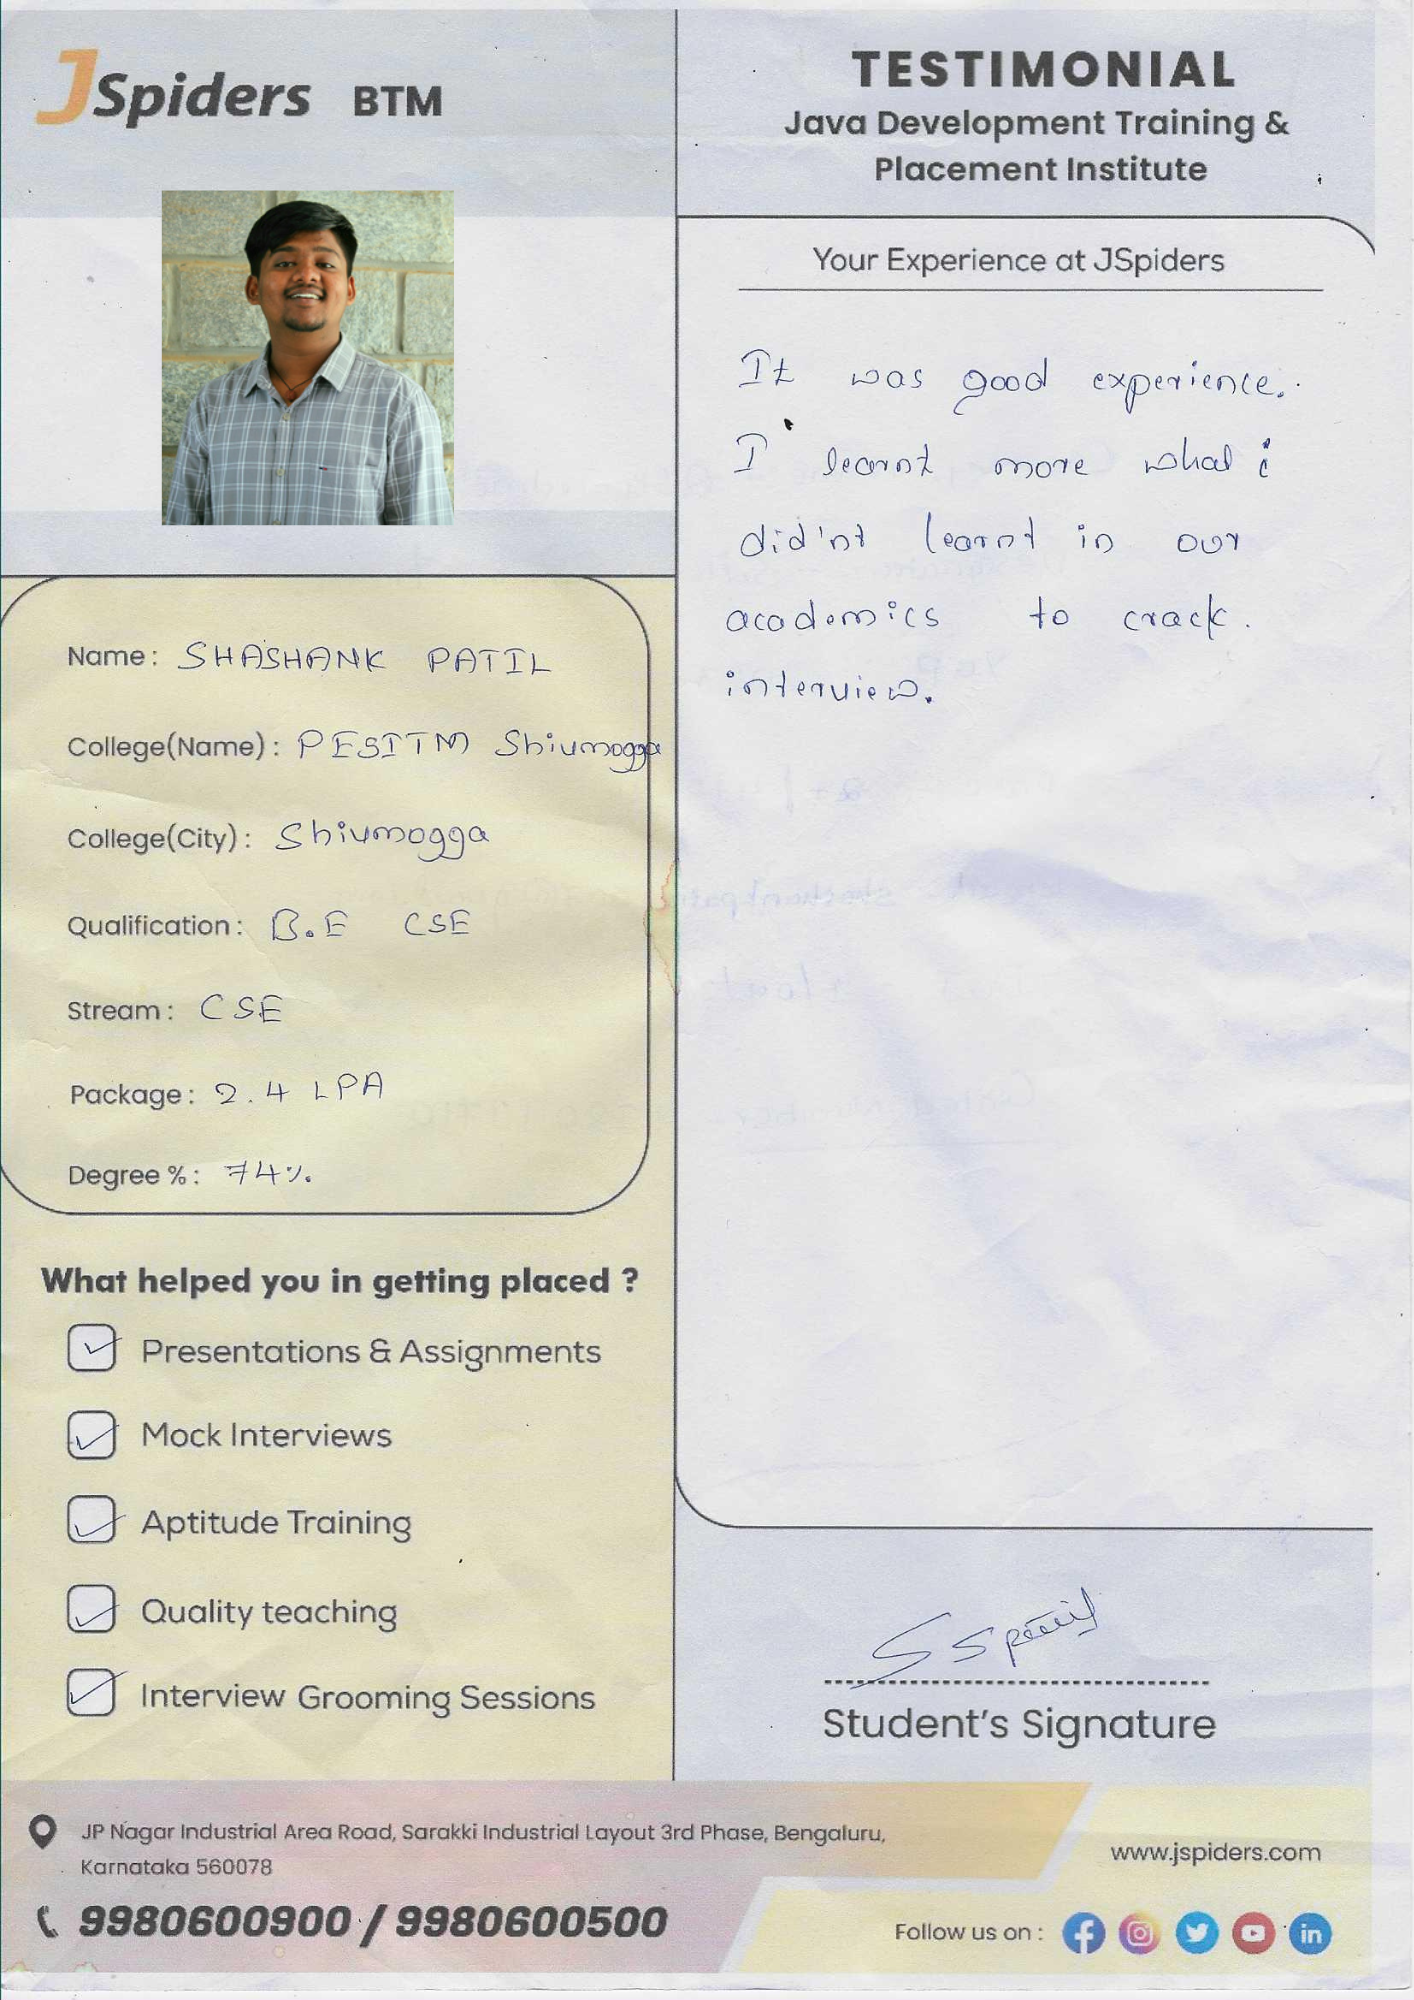 JSpiders BTM
TESTIMONIAL
Java Development Training &
Placement Institute
Your Experience at JSpiders
It was good experience.
I learnt more what i
did'nt learnt in our
academics to crack.
interview.
Name: SHASHANK PATIL
College(Name): PESITM Shivmogga
College(City): Shivmogga
Qualification: B.E CSE
Stream: CSE
Package: 2.4 LPA
Degree %: 74%
What helped you in getting placed ?
Presentations & Assignments
Mock Interviews
Aptitude Training
Quality teaching
Interview Grooming Sessions
SSPatil
Student's Signature
JP Nagar Industrial Area Road, Sarakki Industrial Layout 3rd Phase, Bengaluru,
Karnataka 560078
9980600900 / 9980600500
www.jspiders.com
Follow us on :